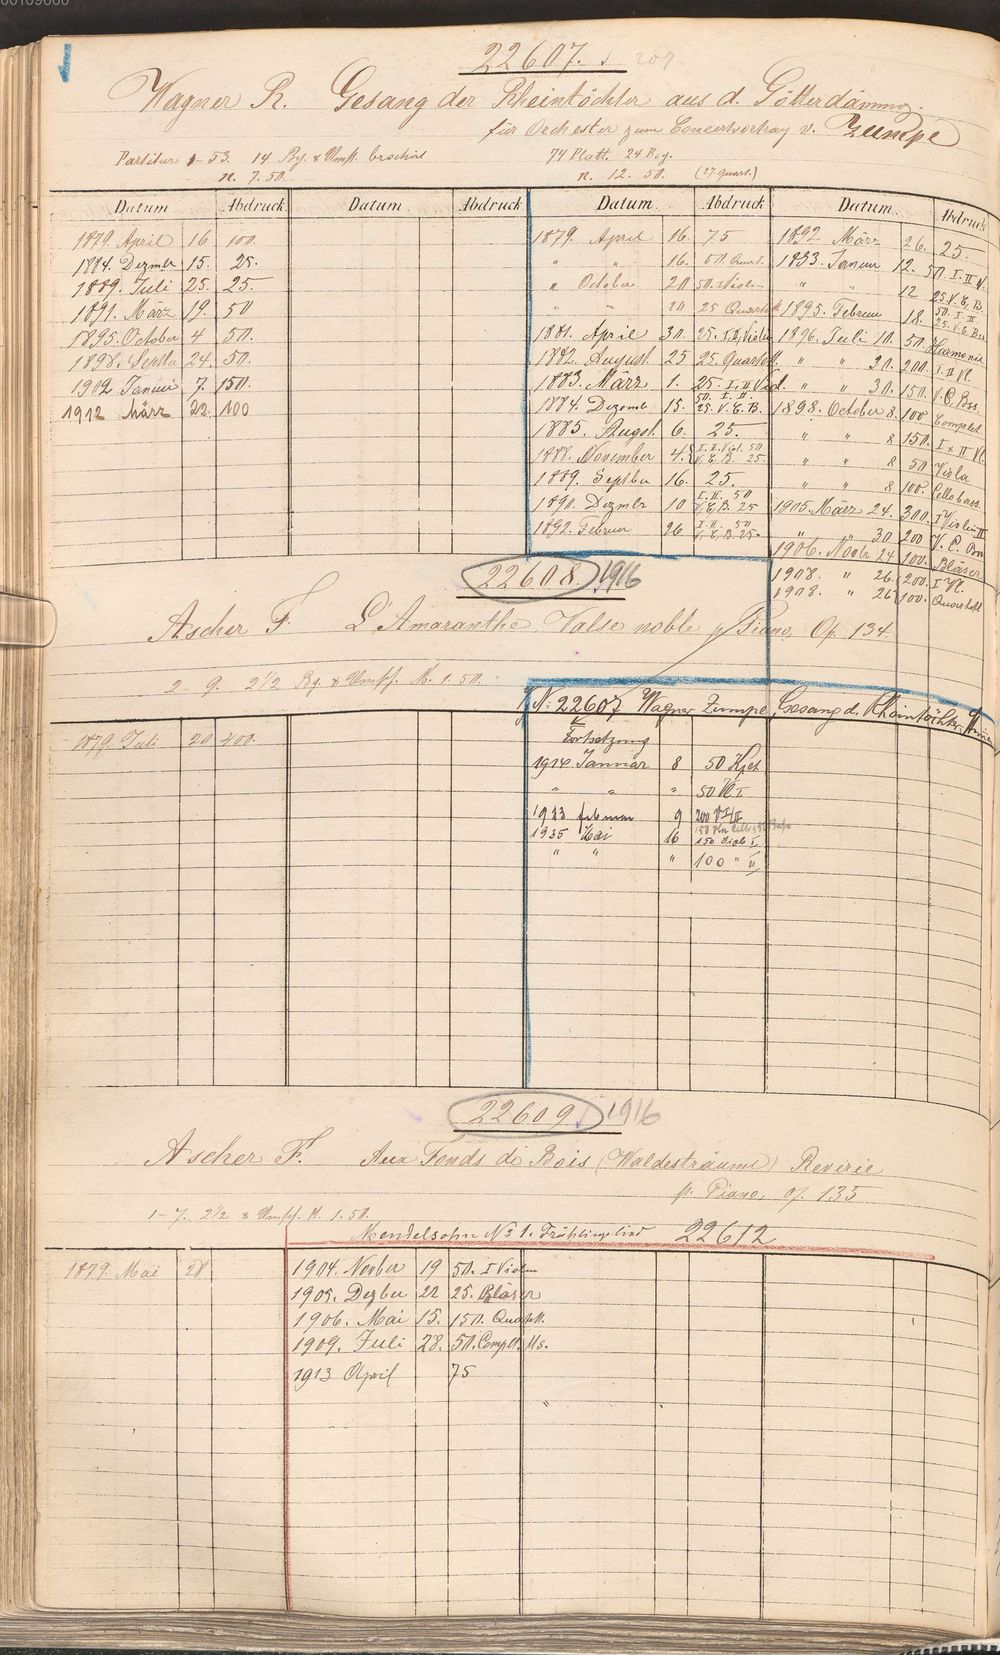 22607.
Wagner R. Gesang der Rheintöchter aus d. Götterdämmrg.
für Orchester zum Concertvortrag v. Zumpe
Partitur 1-53. 14 Bg. & Umschl. brochirt
n. 7.50.
74 Platt. 24 Bog.
n. 12. 50. (27 Quart.)
Datum Abdruck Datum Abdruck Datum Abdruck Datum Abdruck
1879. April 16 100.
1884. Dezmbr 15. 25.
1889. Juli 25. 25.
1891. März 19. 50
1895. October 4 50.
1898. Septbr 24. 50.
1902 Januar 7. 150.
1912 März 22. 100
1879. April 16. 75
" " 16. 50 Quart.
" October 20 50. I Violin
" " 20 25 Quartett
1881. April 30. 25. I.II. Violin
1882. August. 25 25. Quartett
1883. März 1. 25. I. II Viol.
1884. Dezemb 15. 50. I. II. 25. V. C. B.
1885. August. 6. 25.
1888. November 4. I. II. Viol. 50 V. C. B. 25.
1889. Septbr 16. 25.
1890. Dezmbr 10 I. II. 50 V. C. B. 25
1892. Februar 26 I. II. 50 V. C. B. 25.
1892 März 26. 25.
1893. Januar 12. 50 I. II V.
" " 12 25. V. C. B.
1895. Februar 18. 50. I. II 25. V. C. Bss
1896. Juli 10. 50. Harmonie
" " 30. 200. I. II Vl.
" " 30. 150. V. C. Bss.
1898. October 8. 100 Complet.
" " 8 150. I & II Vl.
" " 8 50 Viola
" " 8 100. Cello bass.
1905. März 24. 300. I Violin II
" 30 200 V. C.
1906. Novbr 24 100. Bläser
1908. " 26. 200. I Vl.
1908. " 26 100. Quartett
22608. 1916
Ascher F. L'Amaranthe. Valse noble p. Piano, Op. 134.
2-9. 2½ Bg. & Umschl. M. 1.50.
1879. Juli 20 400.
No. 22607 Wagner Zumpe, Gesang d. Rheintöchter
Fortsetzung
1914 Januar 8 50 Hfte
" " " 50 Vl I
1923 Februar 9 200 V I/II
1935 Mai 16 150 Viol. I
" " " 100 " II
22609. 1916
Ascher F. Aux Fonds de Bois (Waldesträume) Reverie
p. Piano, op. 135
1-7. 2½ & Umschl. M. 1.50.
Mendelsohn No 1. Frühlingslied 22612
1879. Mai 28
1904. Novber 19 50. I Violin
1905. Dezber 22 25. Bläser
1906. Mai 15. 150. Quartett.
1909. Juli 28. 50. Complt. Us.
1913 April 75